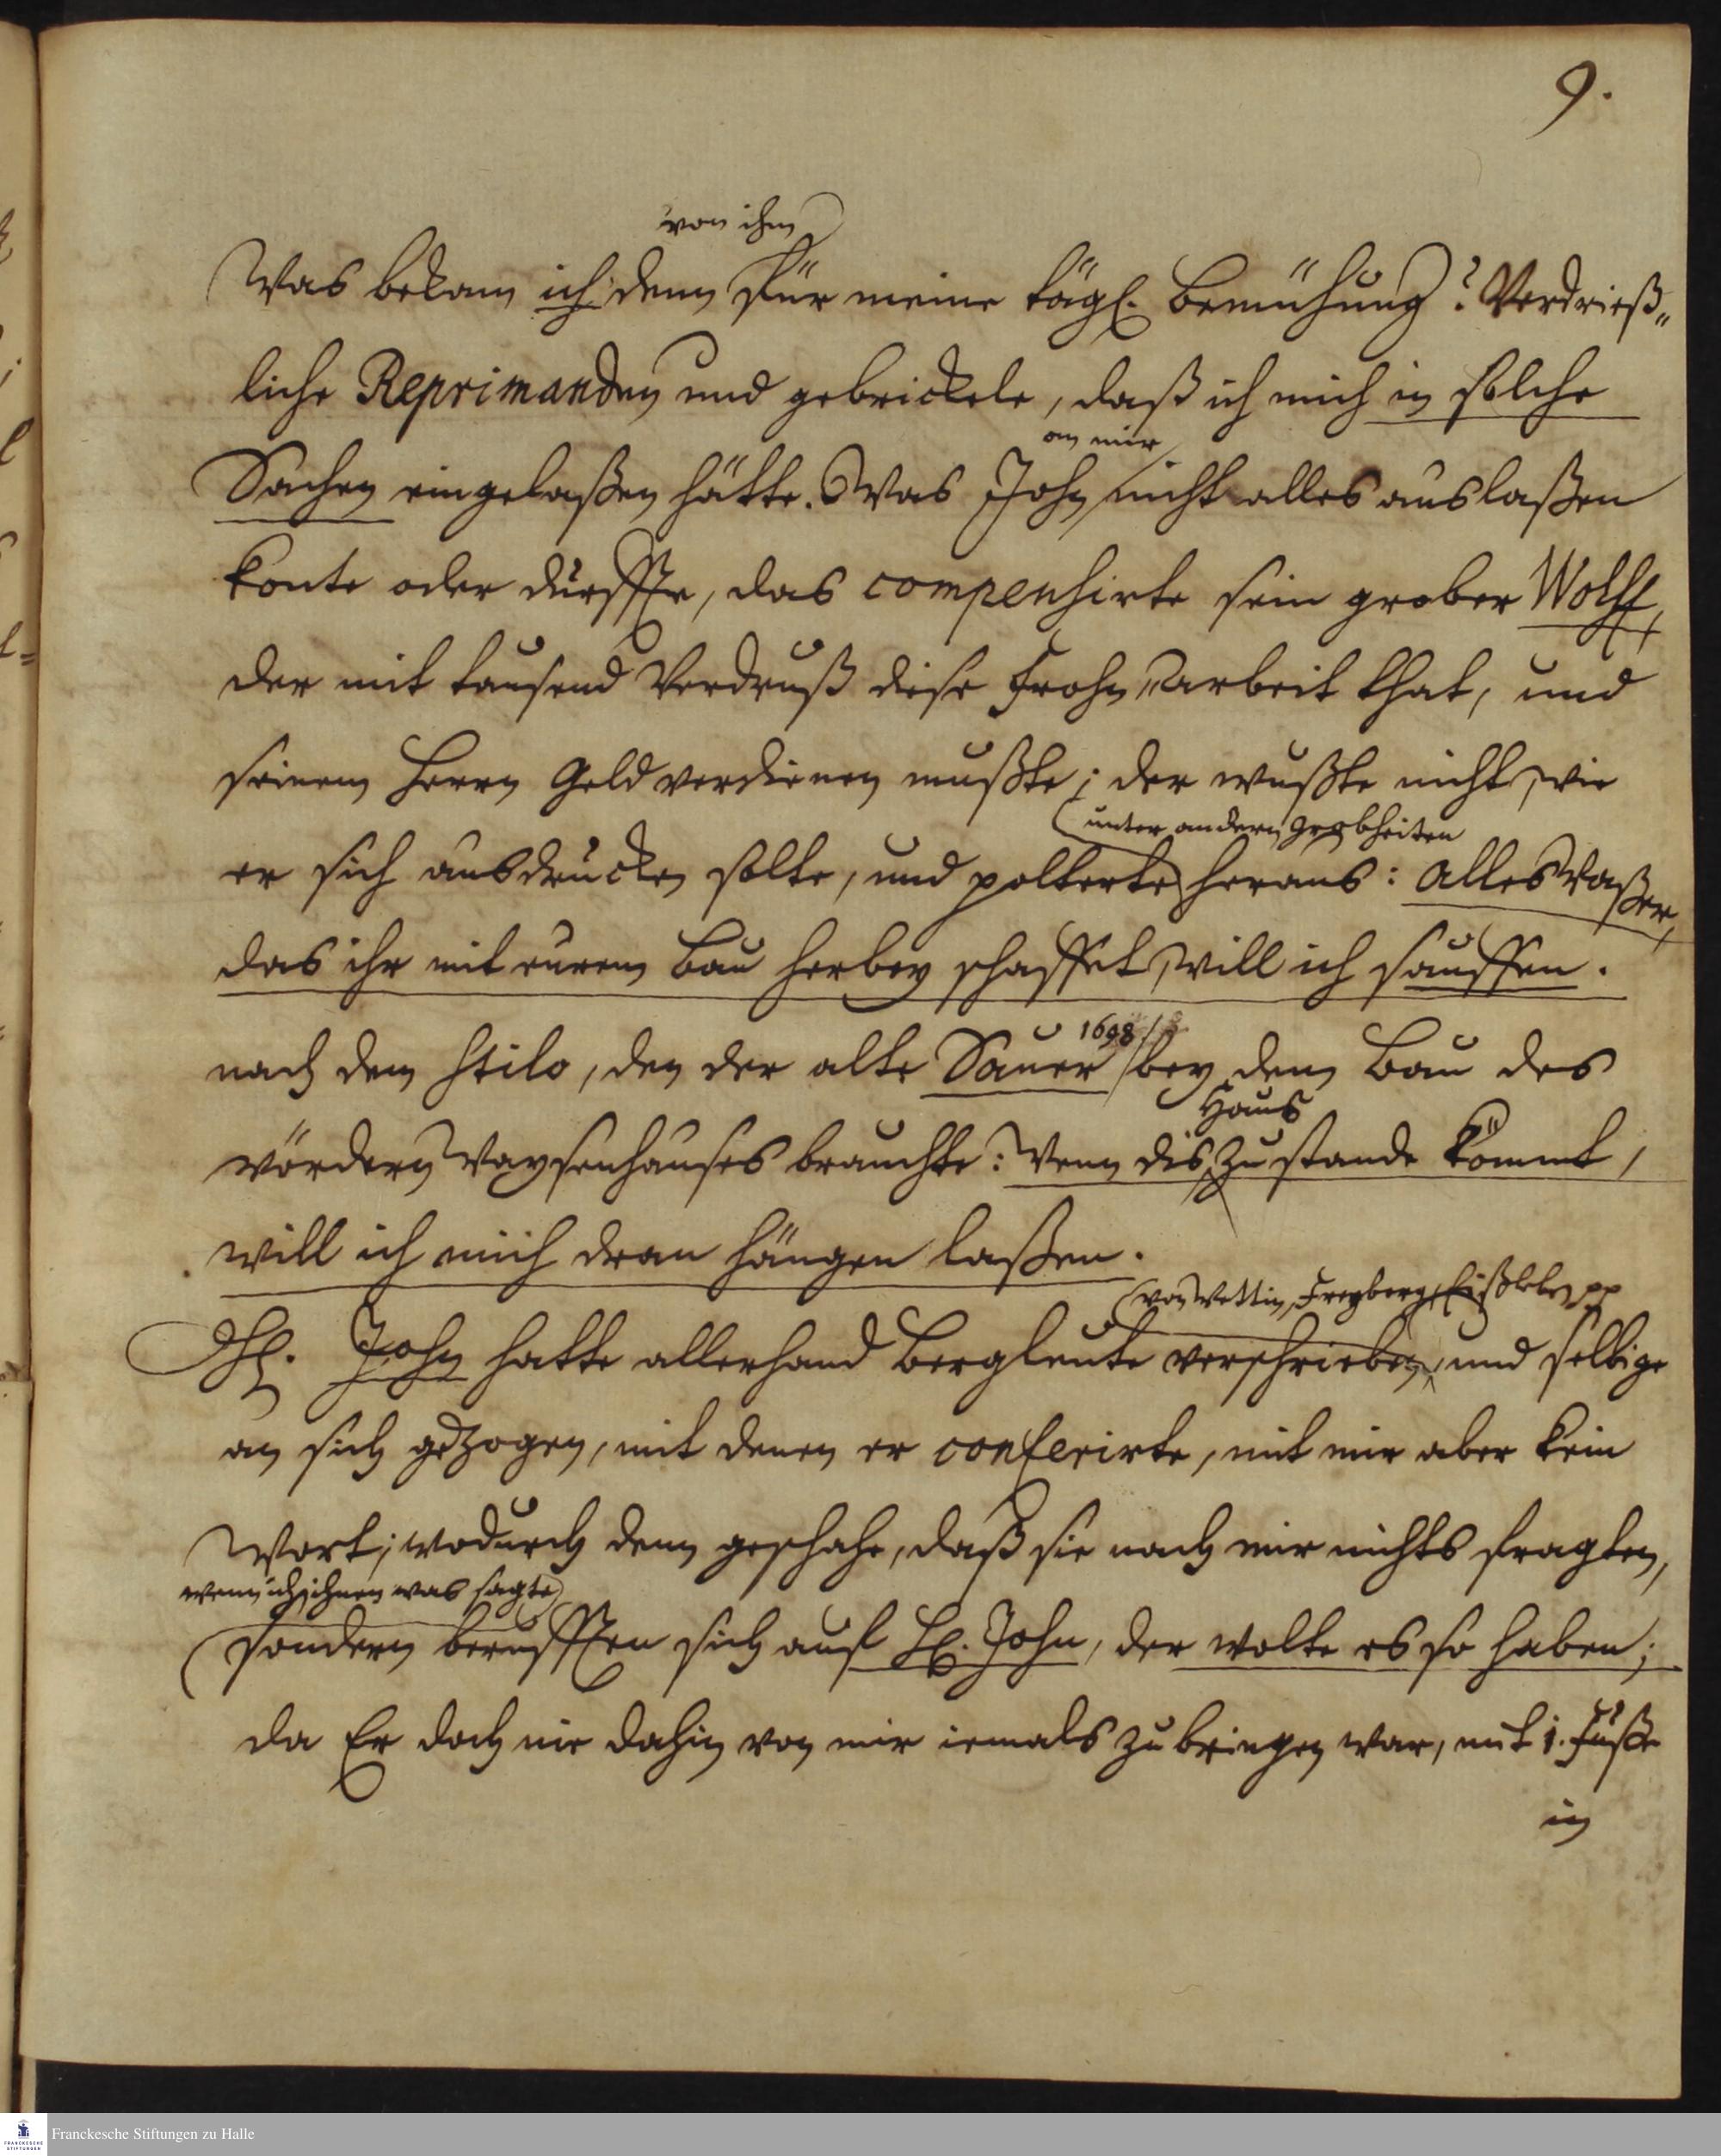 9.
von ihm
Was bekam ich denn für meine tägl. Bemühung? Verdrieß„
liche Reprimanden und gebrickele, daß ich mich in solche
an mir
Sachen eingelaßen hätte. Was John nicht alles auslaßen
konte oder durffte, das compensirte sein grober Wolff,
der mit tausend Verdruß diese Frohn„arbeit that, und
seinem Herrn Geld verdienen mußte; der wußte nicht, wie
unter andern Grobheiten
er sich ausdrucken solte, und polterte heraus: Alles Waßer,
das ihr mit eurem Bau herbey schaffet, will ich sauffen.
1698
nach dem Stilo, den der alte Sauer bey dem Bau des
Haus
vördern Waysenhauses brauchte: Wenn dis zu stande kömmt,
will ich mich dran hängen laßen.
von Wettin, Freyberg, Eißleben pp
John hatte allerhand Bergleute verschrieben, und selbige
an sich gezogen, mit denen er conferirte, mit mir aber kein
Wort; wodurch denn geschahe, daß sie nach mir nichts fragten,
wenn ich ihnen was sagte
sondern berufften sich auf H. John, der wolte es so haben;
da Er doch nie dahin von mir iemals zu bringen war, mit 1. Fuße
in
Franckesche Stiftungen zu Halle